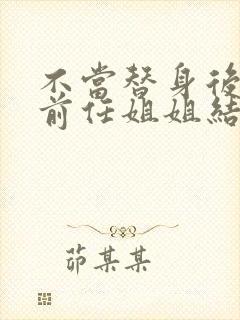 不當替身後
前任姐姐結
茆某某